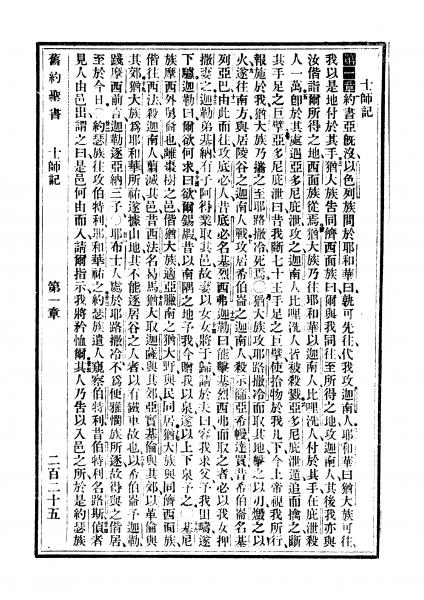 士師記
第一章約書亞旣沒以色列族問於耶和華曰孰可先往代我攻迦南人耶和華曰猶大族可往
我以是地付於其手猶大族告同儕西面族曰爾與我同往至所得之地攻迦南人其後我亦與
汝偕詣爾所得之地西面族從焉猶大族乃往耶和華以迦南人比哩洗人付於其手在庇泄殺
人一萬卽於其處遇亞多尼庇泄攻之迦南人比哩洗人皆被殺戮亞多尼庇泄遁追而擒之斷
其手足之巨擘亞多尼庇泄曰昔我斷七十王手足之巨擘使拾物於我几下今上帝視我所行
報施於我猶大族乃攜之至耶路撒冷死焉○猶大族攻耶路撒冷而取其地擊之以刃爇之以
火遂往南方與居陵谷之迦南人戰攻居希伯崙之迦南人殺示篩亞希幔達買昔希伯崙名基
列亞巴由此而往攻底必人昔底必名基烈西弗迦勒曰能擊基烈西弗而取之者必以我女押
撒妻之迦勒弟基納有子阿得業取其邑故妻以女女將于歸請於夫曰容我求父予我田疇遂
下驢迦勒曰爾欲何求曰欲爾錫嘏昔以南隅之地予我今賜我以泉遂以上下泉予之○基尼
族摩西外舅裔也離棗樹之邑偕猶大族適亞臘南之猶大野與民同居猶大族與同儕西面族
偕往西法殺迦南人翦滅其邑昔西法名曷馬猶大取迦薩與其郊亞實基倫與其郊以革倫與
其郊猶大族為耶和華所祐遂據山地其不能逐居谷之人者以有鐵車故也以希伯崙予迦勒
踐摩西前言迦勒逐亞納三子○耶布士人處於耶路撒冷不為便雅憫族所逐故得與之偕居
至於今日約瑟族往攻伯特利耶和華祐之約瑟族遣人窺察伯特利昔伯特利名路斯偵者
見人由邑出謂之曰是邑何由而入請爾指示我將矜恤爾其人乃告以入邑之所於是約瑟族
舊約聖書 士師記 第一章 二百二十五